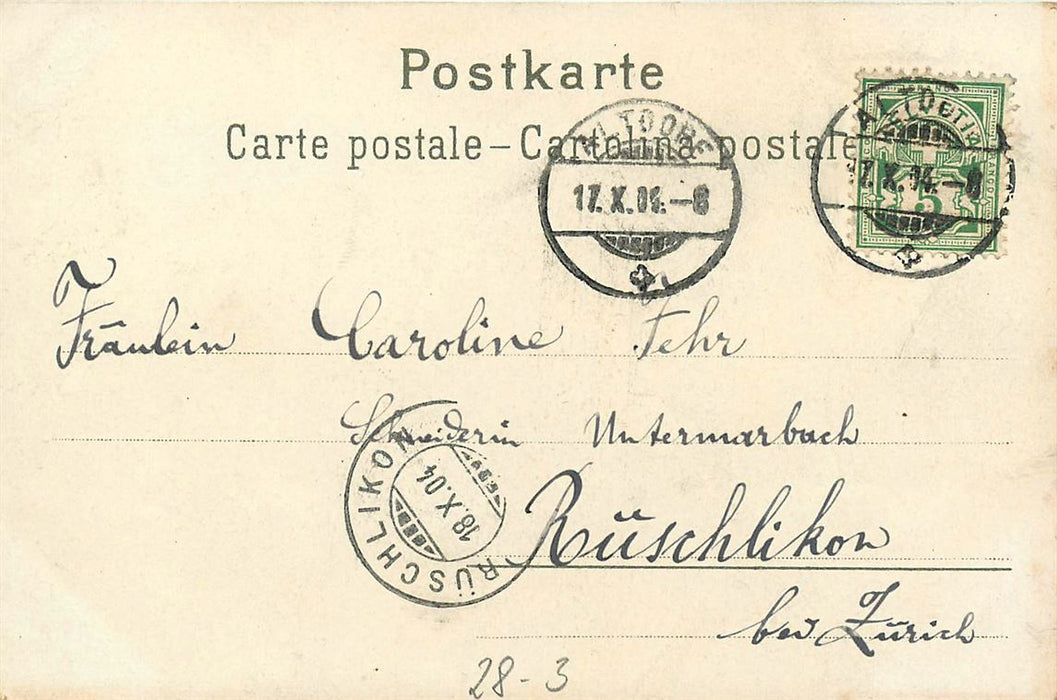 Postkarte
Carte postale – Cartolina postale
17. X. 04. – 8
17. X. 04. – 8
5
Fräulein Caroline Fehr
Schneiderin Untermarbach
RÜSCHLIKON
18.X.04
Rüschlikon
bei Zürich
28-3